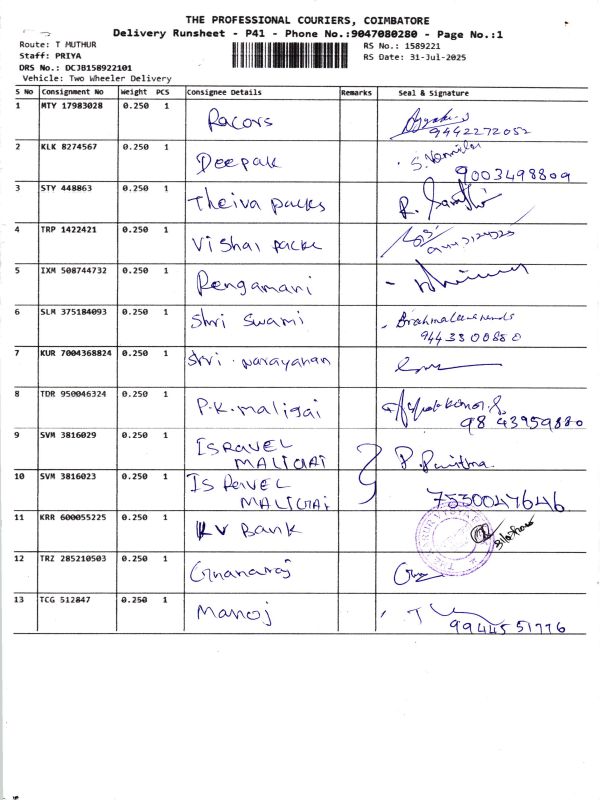 THE PROFESSIONAL COURIERS, COIMBATORE
Delivery Runsheet - P41 - Phone No.:9047080280 - Page No.:1
Route: T MUTHUR
RS No.: 1589221
Staff: PRIYA
RS Date: 31-Jul-2025
DRS No.: DCJB158922101
Vehicle: Two Wheeler Delivery
S No Consignment No Weight PCS Consignee Details Remarks Seal & Signature
1 MTY 17983028 0.250 1 Racors
9442272052
2 KLK 8274567 0.250 1 Deepak
9003498809
3 STY 448863 0.250 1 Theiva packs
4 TRP 1422421 0.250 1 Vishal packe
5 IXM 508744732 0.250 1 Rengamani
6 SLM 375184093 0.250 1 Shri Swami
9443300880
7 KUR 7004368824 0.250 1 Shri. narayanan
8 TDR 950046324 0.250 1 P.K. maligai
9843959880
9 SVM 3816029 0.250 1 ISRAVEL
MALIGAI
P. Pavithra.
10 SVM 3816023 0.250 1 ISRAVEL
MALIGAI
7530047646
11 KRR 600055225 0.250 1 KV Bank
12 TRZ 285210503 0.250 1 Gnanaraj
13 TCG 512847 0.250 1 Manoj
9944551776